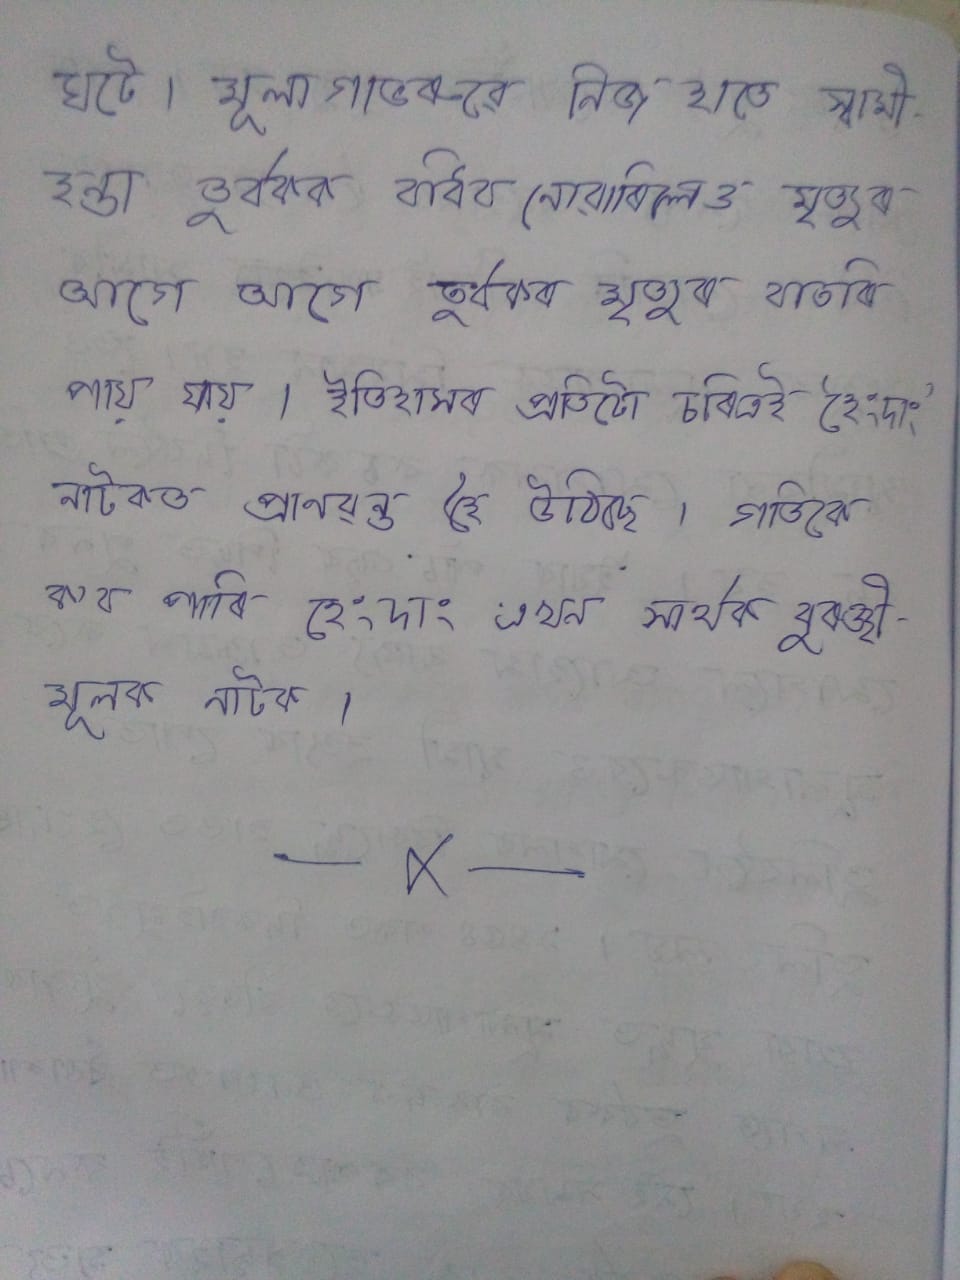 ঘটে । মূলা গাভৰুৱে নিজ হাতে স্বামী-
হন্তা তুৰ্বকক বধিব নোৱাৰিলেও মৃত্যুৰ
আগে আগে তুৰ্বকৰ মৃত্যুৰ বাতৰি
পায় যায় । ইতিহাসৰ প্ৰতিটো চৰিত্ৰই হেংদাং'
নাটকত প্ৰানৱন্ত হৈ উঠিছে । গতিকে
ক'ব পাৰি হেংদাং এখন সাৰ্থক বুৰঞ্জী-
মূলক নাটক ।
— X —